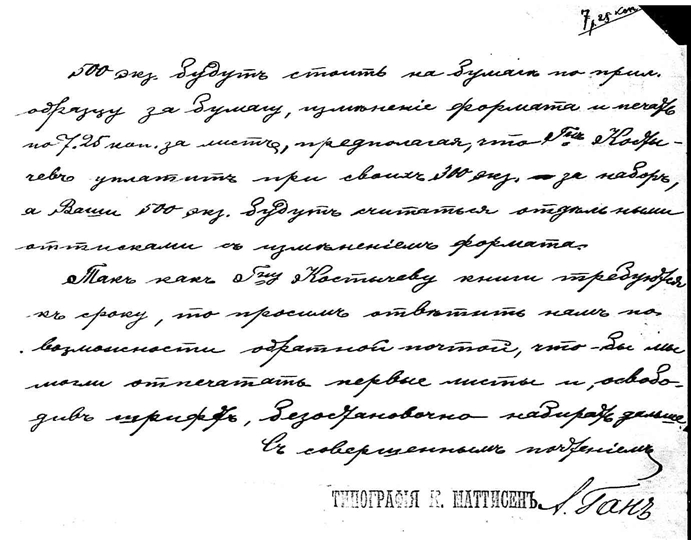 7 р. 25 коп
500 экз. будутъ стоить на бумагѣ по прил.
образцу за бумагу, измѣненіе формата и печать
по 7.25 коп. за листъ, предполагая, что Гнъ Косты-
чевъ уплатитъ при своихъ 300 экз. — за наборъ,
а Ваши 500 экз. будутъ считаться отдѣльными
оттисками съ измѣненіемъ формата.
Такъ какъ Гну Костычеву книги требуются
къ сроку, то просимъ отвѣтить намъ по
возможности обратной почтой, что-бы мы
могли отпечатать первые листы и, освобо-
дивъ шрифтъ, безостановочно набирать дальше.
Съ совершеннымъ почтеніемъ
ТИПОГРАФІЯ К. МАТТИСЕНЪ А. Ганъ